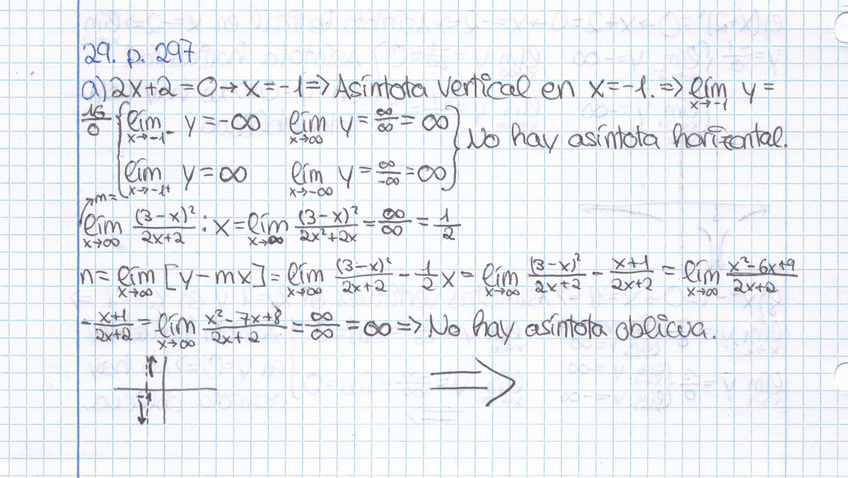 29. p. 297
a) 2x+2=0→x=-1⇒Asíntota vertical en x=-1.⇒lím x→-1 y=
16/0 { lím x→-1⁻ y=-∞ lím x→∞ y=∞/∞=∞
lím x→-1⁺ y=∞ lím x→-∞ y=∞/-∞=∞ } No hay asíntota horizontal.
m=
lím x→∞ (3-x)²/2x+2 : x=lím x→∞ (3-x)²/2x²+2x=∞/∞=1/2
n=lím x→∞ [y-mx]=lím x→∞ (3-x)²/2x+2 - 1/2 x=lím x→∞ (3-x)²/2x+2 - x+1/2x+2=lím x→∞ x²-6x+9/2x+2
-x+1/2x+2=lím x→∞ x²-7x+8/2x+2=∞/∞=∞⇒No hay asíntota oblicua.